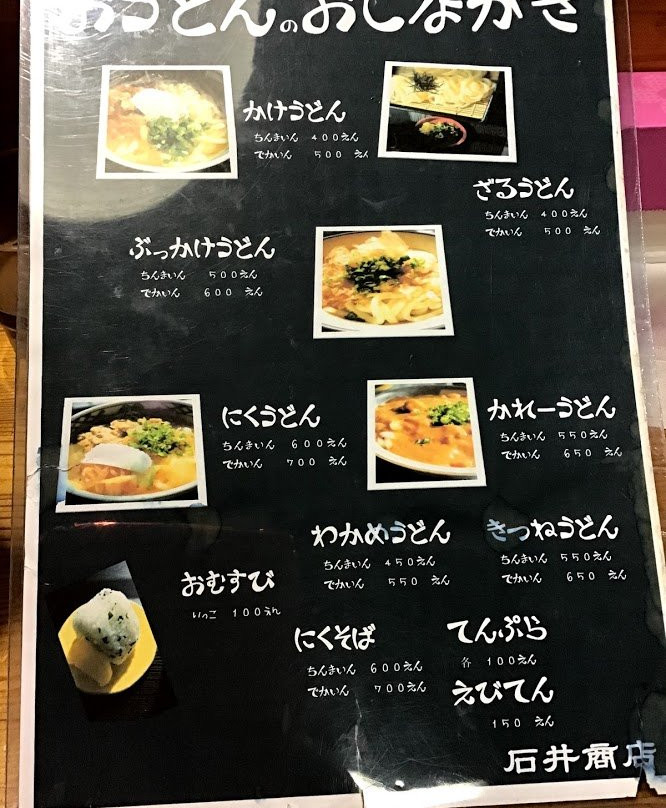 おうどんのおしながき
かけうどん
ちんまいん 400えん
でかいん 500 えん
ざるうどん
ちんまいん 400えん
でかいん 500 えん
ぶっかけうどん
ちんまいん 500えん
でかいん 600 えん
にくうどん
ちんまいん 600えん
でかいん 700 えん
かれーうどん
ちんまいん 550えん
でかいん 650 えん
わかめうどん
ちんまいん 450えん
でかいん 550 えん
きつねうどん
ちんまいん 550えん
でかいん 650 えん
おむすび
いっこ 100えん
にくそば
ちんまいん 600えん
でかいん 700えん
てんぷら
各 100えん
えびてん
150 えん
石井商店